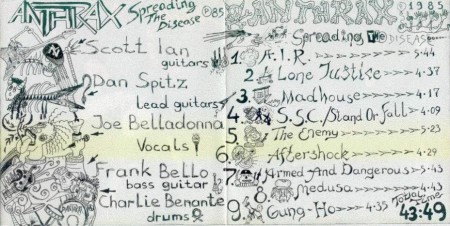 ANTHRAX Spreading The Disease ℗85
Scott Ian
guitars
Dan Spitz
lead guitars
Joe Belladonna
Vocals
Frank Bello
bass guitar
Charlie Benante
drums
ANTHRAX ℗1985
Spreading The Disease
1. A.I.R. 5:44
2. Lone Justice 4:37
3. Madhouse 4:17
4. S.S.C./Stand Or Fall 4:09
5. The Enemy 5:23
6. Aftershock 4:29
7. Armed And Dangerous 5:43
8. Medusa 4:43
9. Gung-Ho 4:35 Total Time
43:49